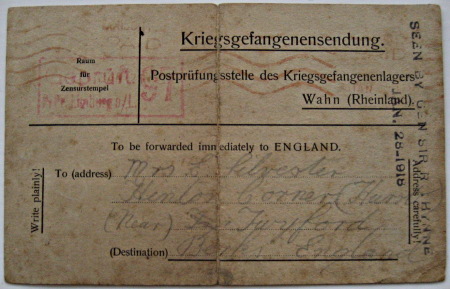 Kriegsgefangenensendung.
Raum
für
Zensurstempel
Postprüfungsstelle des Kriegsgefangenenlagers
Wahn (Rheinland).
SEEN BY GEN SIR R THYNNE
JAN. 28-1918
To be forwarded immediately to ENGLAND.
Write plainly!
To (address) Mrs Silvester
Corner (Hurst)
(Near) Twyford
(Destination) Berks England
Address carefully!